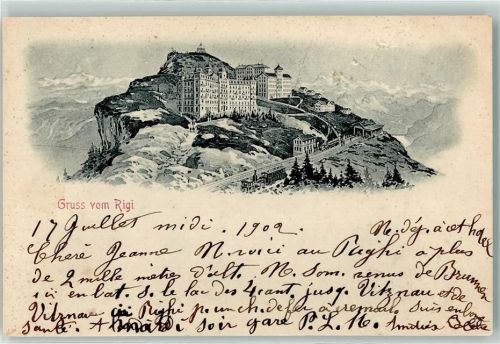 Gruss vom Rigi
17 Juillet midi. 1902.
N. dég. à cet hotel
Chère Jeanne N. voici au Righi à plus
de 2 mille mètres d'alt. N. som. venus de Brunnen
ici en bat. s. le lac des 4 cant. jusq. Vitznau et de
Vitznau au Righi p. un ch. de fer à cremail. Suis en bonne
santé. A mardi soir gare P. L. M.